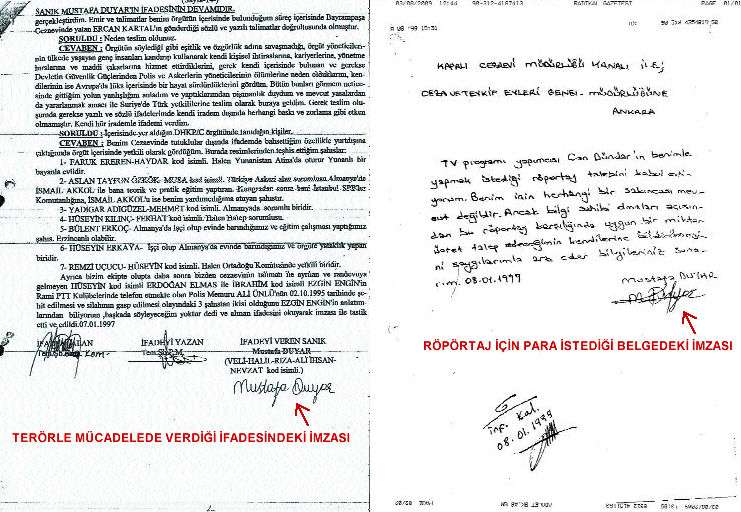 SANIK MUSTAFA DUYAR'IN İFADESİNİN DEVAMIDIR.
gerçekleştirdim. Emir ve talimatlar benim örgütün içerisinde bulunduğum süreç içerisinde Bayrampaşa
Cezaevinde yatan ERCAN KARTAL'ın gönderdiği sözlü ve yazılı talimatlar doğrultusunda olmuştur.
SORULDU : Neden teslim oldunuz.
CEVABEN : Örgütün söylediği gibi eşitlik ve özgürlük adına savaşmadığı, örgüt yöneticileri-
nin ülkede yaşayan genç insanları kandırıp kullanarak kendi kişisel ihtiraslarına, kariyerlerine, yönetme
hırslarına ve maddi çıkarlarına hizmet ettirdiklerini, gerek kendi içerisinde bulunan ve gerekse
Devletin Güvenlik Güçlerinden Polis ve Askerlerin yöneticilerinin ölümlerine neden olduklarını, ken-
dilerinin ise Avrupa'da lüks içerisinde bir hayat sürdürdüklerini gördüm. Bütün bunları görmem netice-
sinde gittiğim yolun yanlışlığını anladım ve yaptıklarımdan pişmanlık duydum ve mevcut yasalardan
da yararlanmak amacı ile Suriye'de Türk yetkililerine teslim olarak buraya geldim. Gerek teslim olu-
şumda gerekse yazılı ve sözlü ifadelerimde kendi iradem dışında herhangi baskı ve zorlama gibi etken
olmamıştır. Kendi hür irademle ifademi verdim.
SORULDU : İçerisinde yer aldığın DHKP/C örgütünde tanıdığın kişiler.
CEVABEN : Benim Cezaevinde tutuklular dışında ifademde bahsettiğim özellikle yurtdışına
çıktığımda örgüt içerisinde yetkili olarak gördüğüm. Burada resimlerinden teşhis ettiğim şahıslar:
1- FARUK EREREN-HAYDAR kod isimli. Halen Yunanistan Atina'da oturur Yunanlı bir
bayanla evlidir.
2- ASLAN TAYFUN ÖZKÖK- MUSA kod isimli. Türkiye Askeri alan sorumlusu Almanya'da
İSMAİL AKKOL ile bana teorik ve pratik eğitim yaptıran. Kongreden sonra beni İstanbul
Komutanlığına, İSMAİL AKKOL'u ise benim yardımcılığıma atayan şahıstır.
3- YADİGAR ADIGÜZEL-MEHMET kod isimli. Almanya'da sorumlu biridir.
4- HÜSEYİN KILINÇ- FERHAT kod isimli. Halen Halep sorumlusu.
5- BÜLENT ERKOÇ- Almanya'da İşçi olup evinde barındığımız ve eğitim çalışması yaptığımız
şahıs. Erzincanlı olabilir.
6- HÜSEYİN ERKAYA- İşçi olup Almanya'da evinde barındığımız ve örgüte yataklık yapan
biridir.
7- REMZİ UÇUCU- HÜSEYİN kod isimli. Halen Ortadoğu Komitesinde yetkili biridir.
Ayrıca bizim ekipte olupta daha sonra bizden cezaevinin talimatı ile ayrılan ve randevuya
gelmeyen HÜSEYİN kod isimli ERDOĞAN ELMAS ile İBRAHİM kod isimli EZGİN ENGİN'in
Rami PTT Kulübelerinde telefon etmekte olan Polis Memuru ALİ ÜNLÜ'nün 02.10.1995 tarihinde şe-
hit edilmesi ve silahının gasp edilmesi olayındaki 3 şahıstan ikisi olduğunu EZGİN ENGİN'in anlatım-
larından biliyorum, başkada söyleyeceğim yoktur dedi ve alınan ifadesini okuyarak imzası ile tasdik
etti ve edildi.07.01.1997
İFADEYİ ALAN İFADEYİ YAZAN İFADEYİ VEREN SANIK
Mustafa DUYAR
(VELİ-HALİL-RIZA-ALİ İHSAN-
NEVZAT kod isimli.)
Mustafa Duyar
TERÖRLE MÜCADELEDE VERDİĞİ İFADESİNDEKİ İMZASI
03/08/2009 12:44 90-312-4187413 RADIKAL GAZETESI PAGE 01/01
KAPALI CEZAEVİ MÜDÜRLÜĞÜ KANALI İLE;
CEZA VE TEVKİF EVLERİ GENEL MÜDÜRLÜĞÜNE
ANKARA
TV programı yapımcısı Can Dündar'ın benimle
yapmak istediği röportaj talebini kabul edi-
yorum. Benim için herhangi bir sakıncası mev-
cut değildir. Ancak bilgi sahibi olmaları açısın-
dan bu röportaj karşılığında uygun bir miktar
ücret talep edeceğimin kendilerine bildirilmesi-
ni saygılarımla arz eder bilgilerinize suna-
rım. 08.01.1999
Mustafa DUYAR
M Duyar
RÖPÖRTAJ İÇİN PARA İSTEDİĞİ BELGEDEKİ İMZASI
08.01.1999